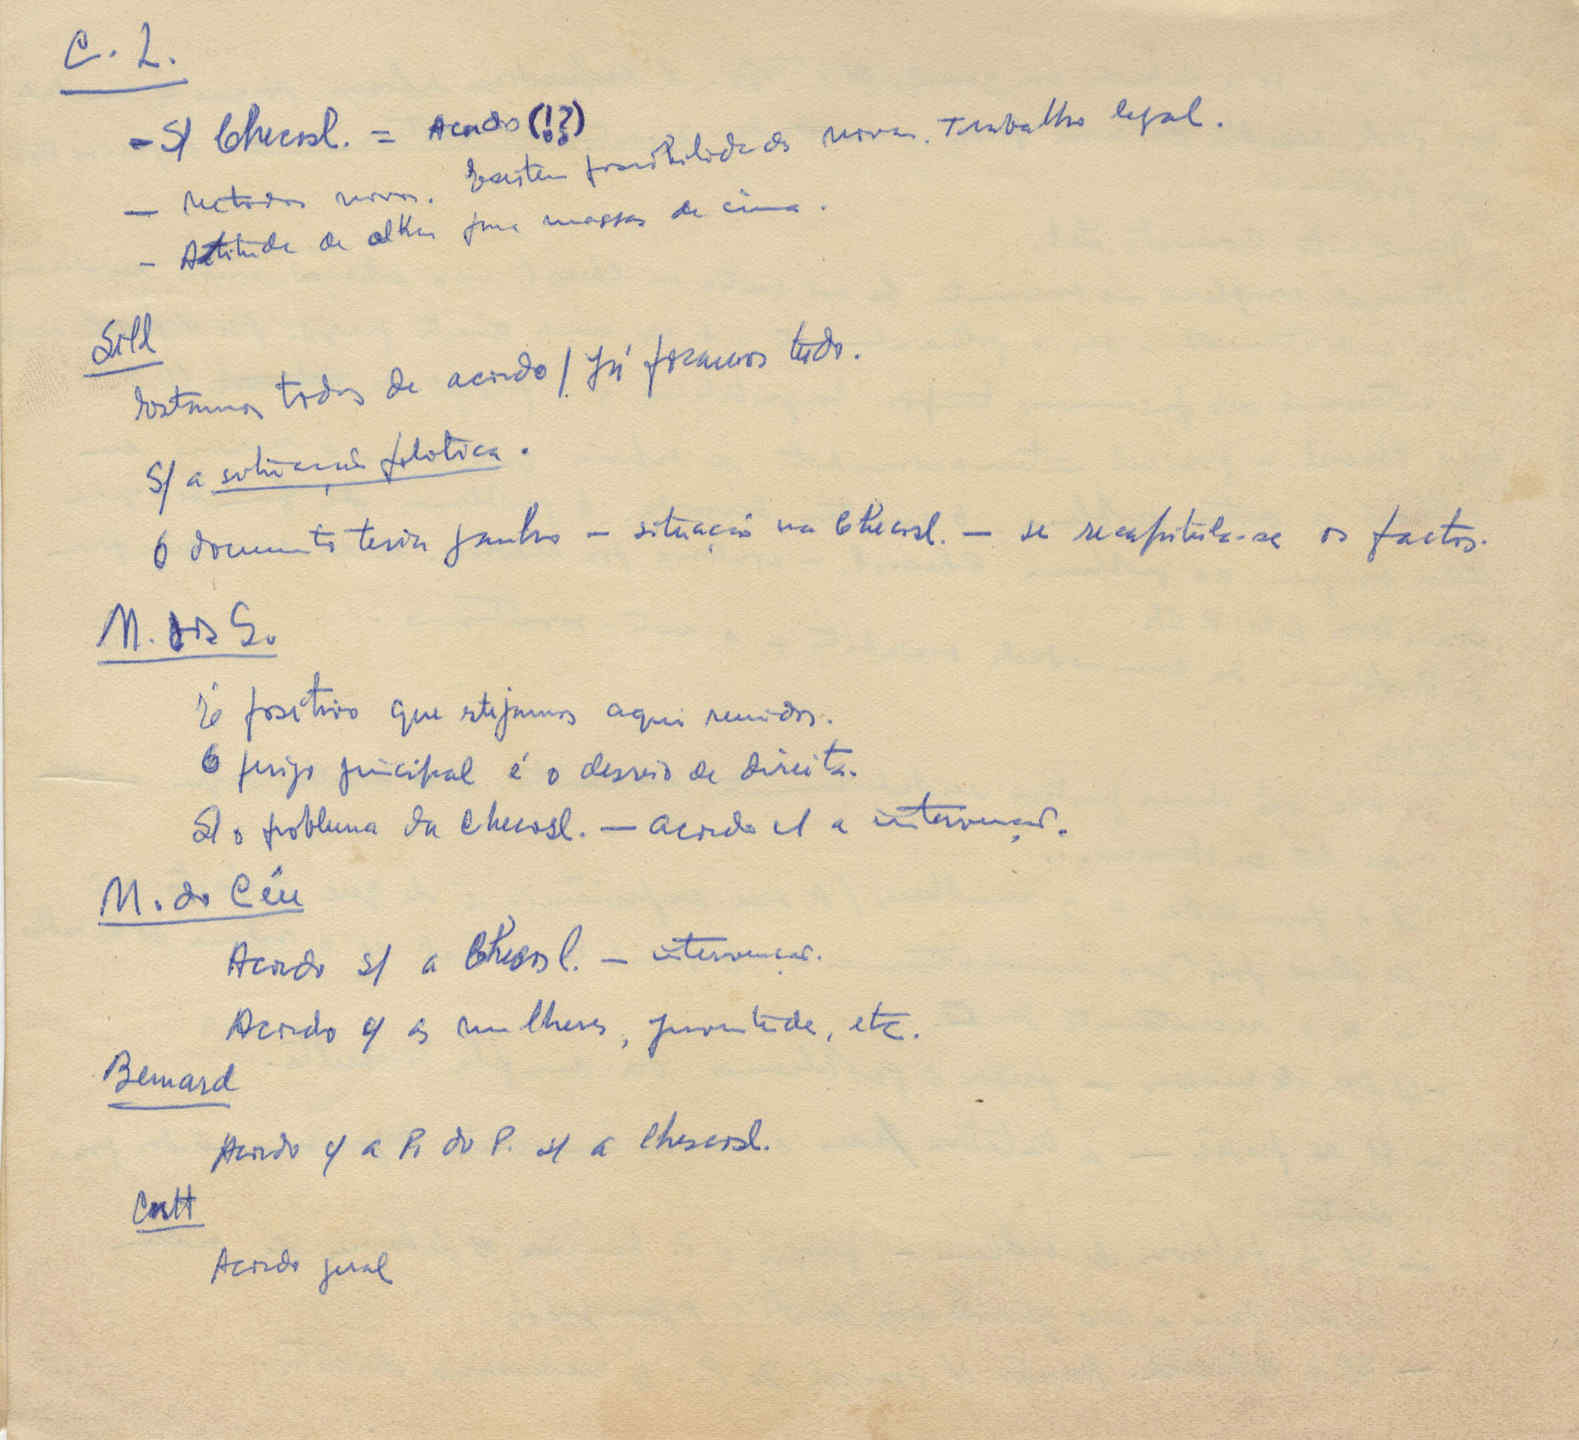 C. L.
- S/ Checosl. = Acordo (!?)
- Metodos novos. Existem possibilidades novas. Trabalho legal.
- Atitude de olhar para massas de cima.
Sill
Estamos todos de acordo / Já focamos tudo.
S/ a situação política.
O documento teria ganho - situação na Checosl. - se recapitula-se os factos.
M. dos S.
É positivo que estejamos aqui reunidos.
O perigo principal é o desvio de direita.
S/ o problema da Checosl. - acordo c/ a intervenção.
M. do Céu
Acordo s/ a Checosl. - intervenção.
Acordo c/ as mulheres, juventude, etc.
Bernard
Acordo c/ a P. do P. s/ a Checosl.
Acordo geral